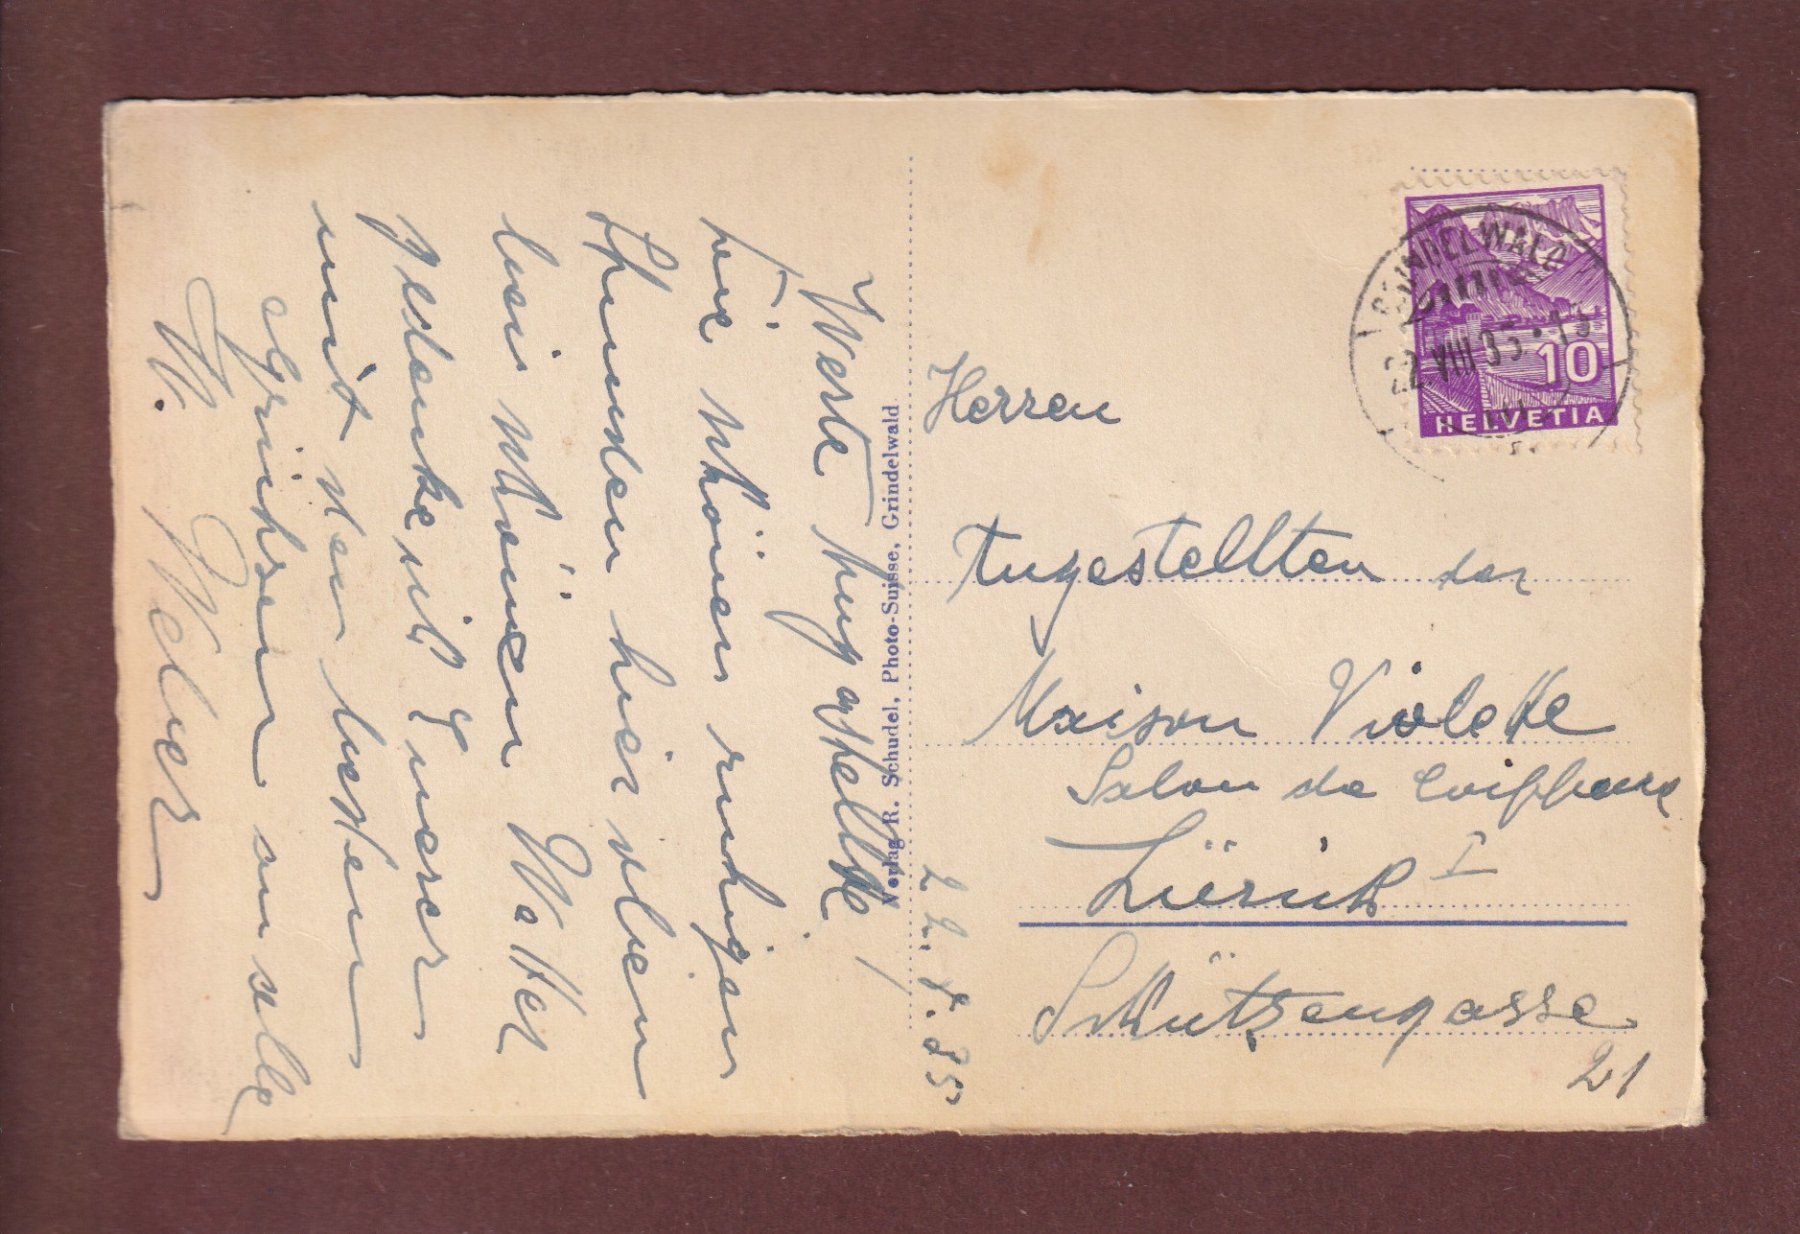 22. 8. 35
Werte Angestellte!
Die schönen ruhigen
Stunden hier oben
bei schönen Wetter
gedenke ich Euerer
mit den besten
Grüssen an alle
W. Weber
Verlag R. Schudel, Photo-Suisse, Grindelwald
GRINDELWALD
22.VIII.35
10
HELVETIA
Herren
Angestellten der
Maison Violette
Salon de Coiffeure
Zürich I
Schützengasse
21